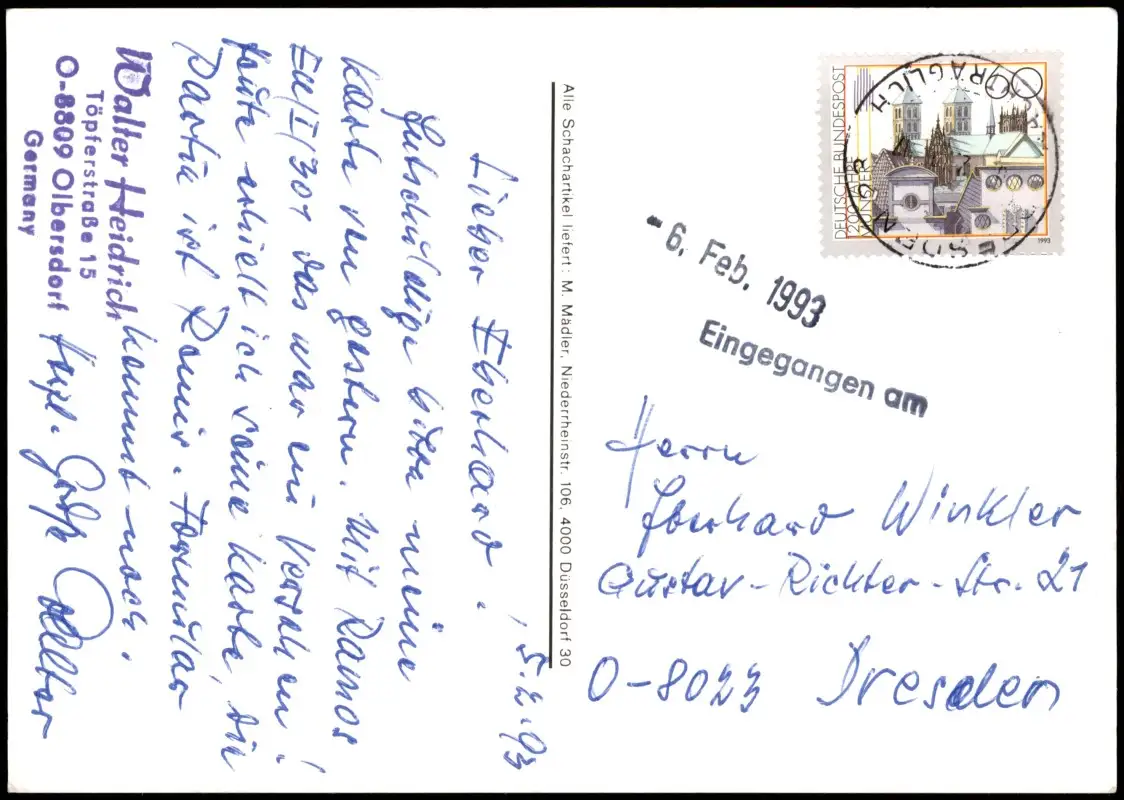 5.2.93
Lieber Eberhard,
Entschuldige bitte meine
Karte von gestern. Mit Ramos
EU/II/301 das war ein Versehen!
heute erhielt ich seine Karte, die
Partie ist Remis. Formular
kommt noch.
Herzl. Grüße Walter
Walter Heidrich
Töpferstraße 15
O-8809 Olbersdorf
Germany
Alle Schachartikel liefert: M. Mädler, Niederrheinstr. 106, 4000 Düsseldorf 30
DEUTSCHE BUNDESPOST
1200 JAHRE
MÜNSTER
100
1993
- 6. Feb. 1993
Eingegangen am
Herrn
Eberhard Winkler
Gustav-Richter-Str. 21
O-8023 Dresden